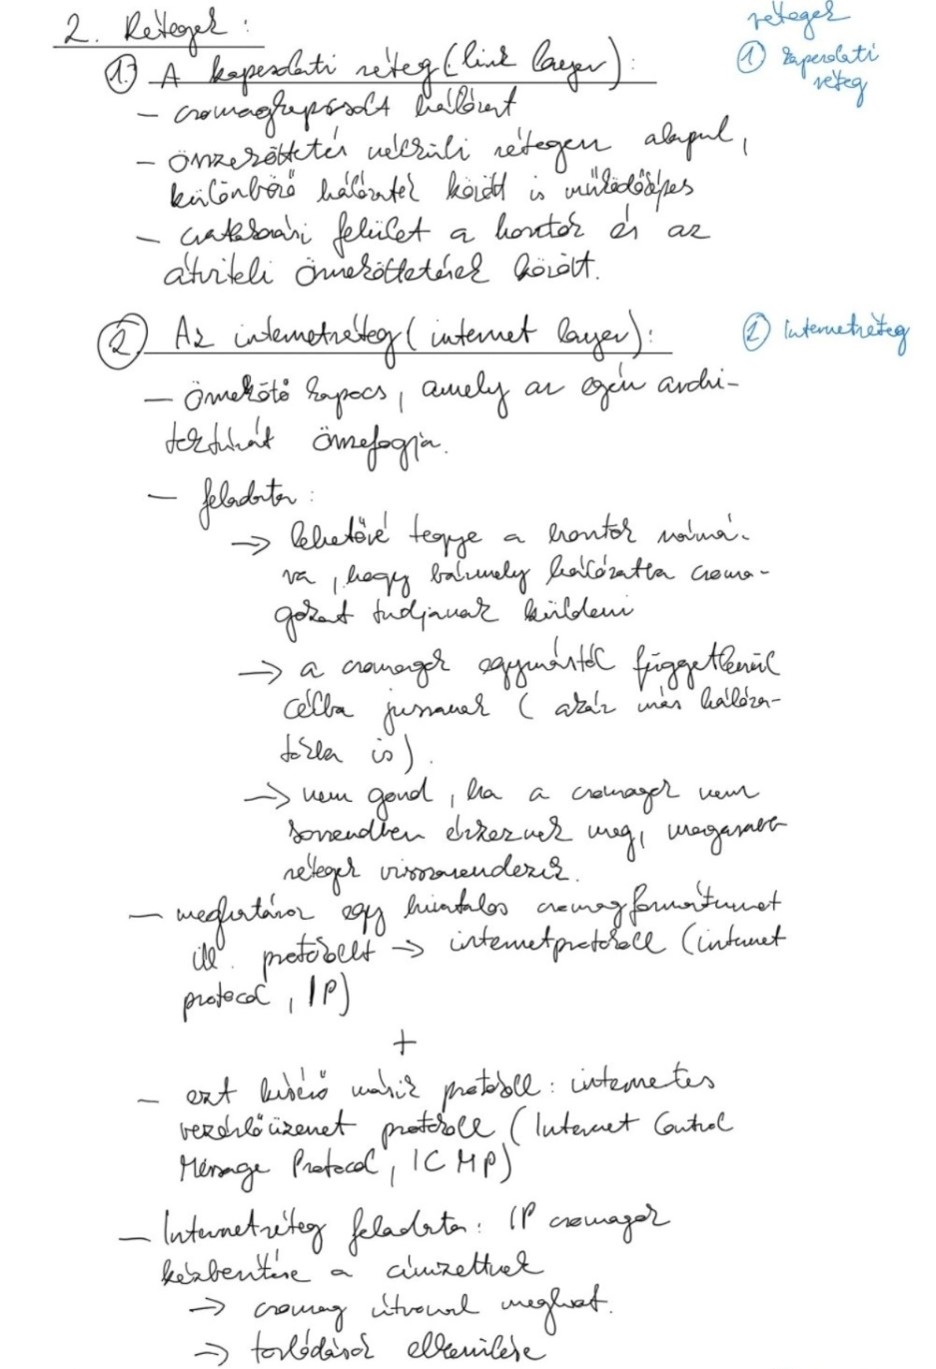 2. Rétegek :
rétegek
① A kapcsolati réteg (link layer) :
① kapcsolati
réteg
– csomagkapcsolt hálózat
– összeköttetés nélküli rétegen alapul,
különböző hálózatok között is működőképes
– csatlakozási felület a hosztok és az
átviteli összeköttetések között.
② Az internetréteg (internet layer) :
② internetréteg
– összekötő kapocs, amely az egész archi-
tektúrát összefogja.
– feladata :
→ lehetővé tegye a hosztok számá-
ra, hogy bármely hálózatba csoma-
gokat tudjanak küldeni
→ a csomagok egymástól függetlenül
célba jussanak (akár más hálóza-
tokba is).
→ nem gond, ha a csomagok nem
sorrendben érkeznek meg, magasabb
rétegek visszarendezik.
– meghatároz egy hivatalos csomagformátumot
ill. protokollt → internetprotokoll (internet
protocol, IP)
+
– ezt kísérő másik protokoll : internetes
vezérlőüzenet protokoll (Internet Control
Message Protocol, ICMP)
– Internetréteg feladata : IP csomagok
kézbesítése a címzettnek
→ csomag útvonal meghat.
→ torlódások elkerülése